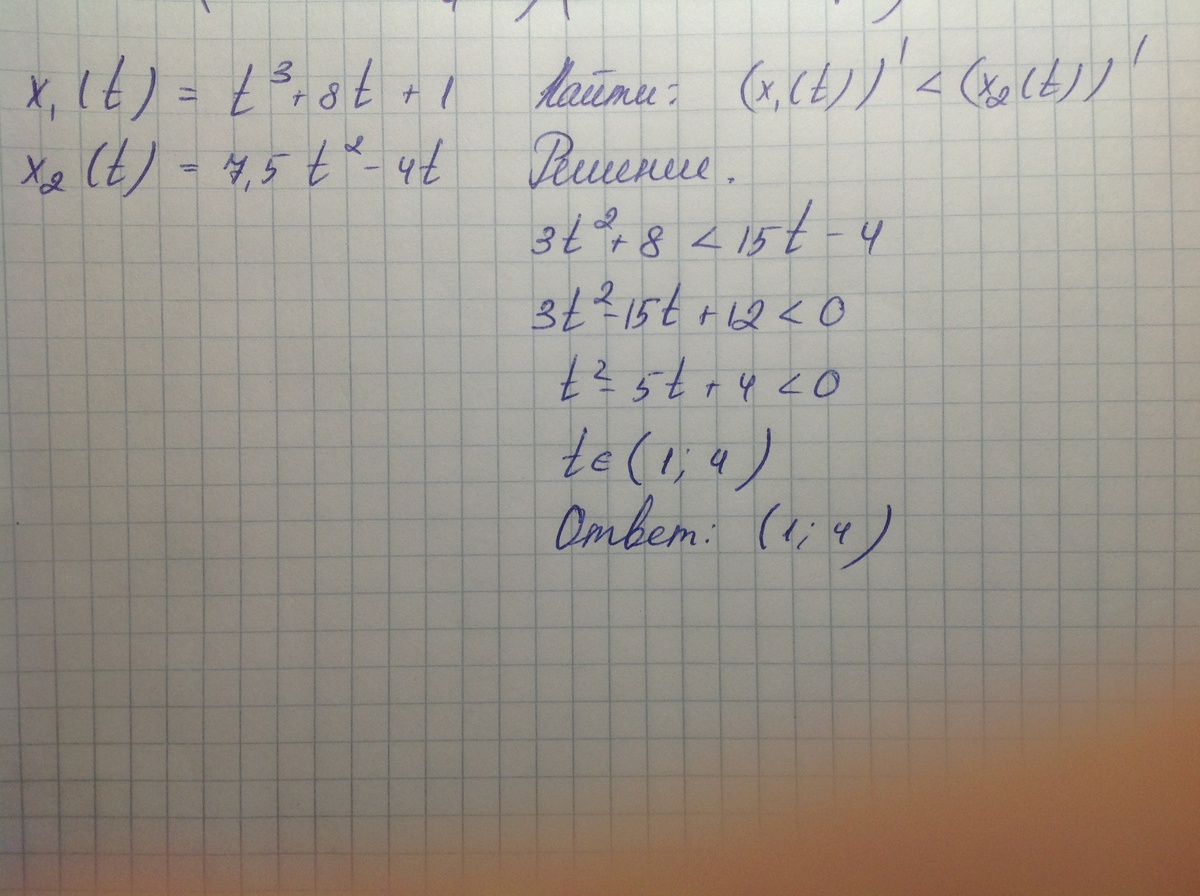 x₁(t) = t³ + 8t + 1 Найти: (x₁(t))' < (x₂(t))'
x₂(t) = 7,5t² - 4t Решение.
3t² + 8 < 15t - 4
3t² - 15t + 12 < 0
t² - 5t + 4 < 0
t ∈ (1; 4)
Ответ: (1; 4)